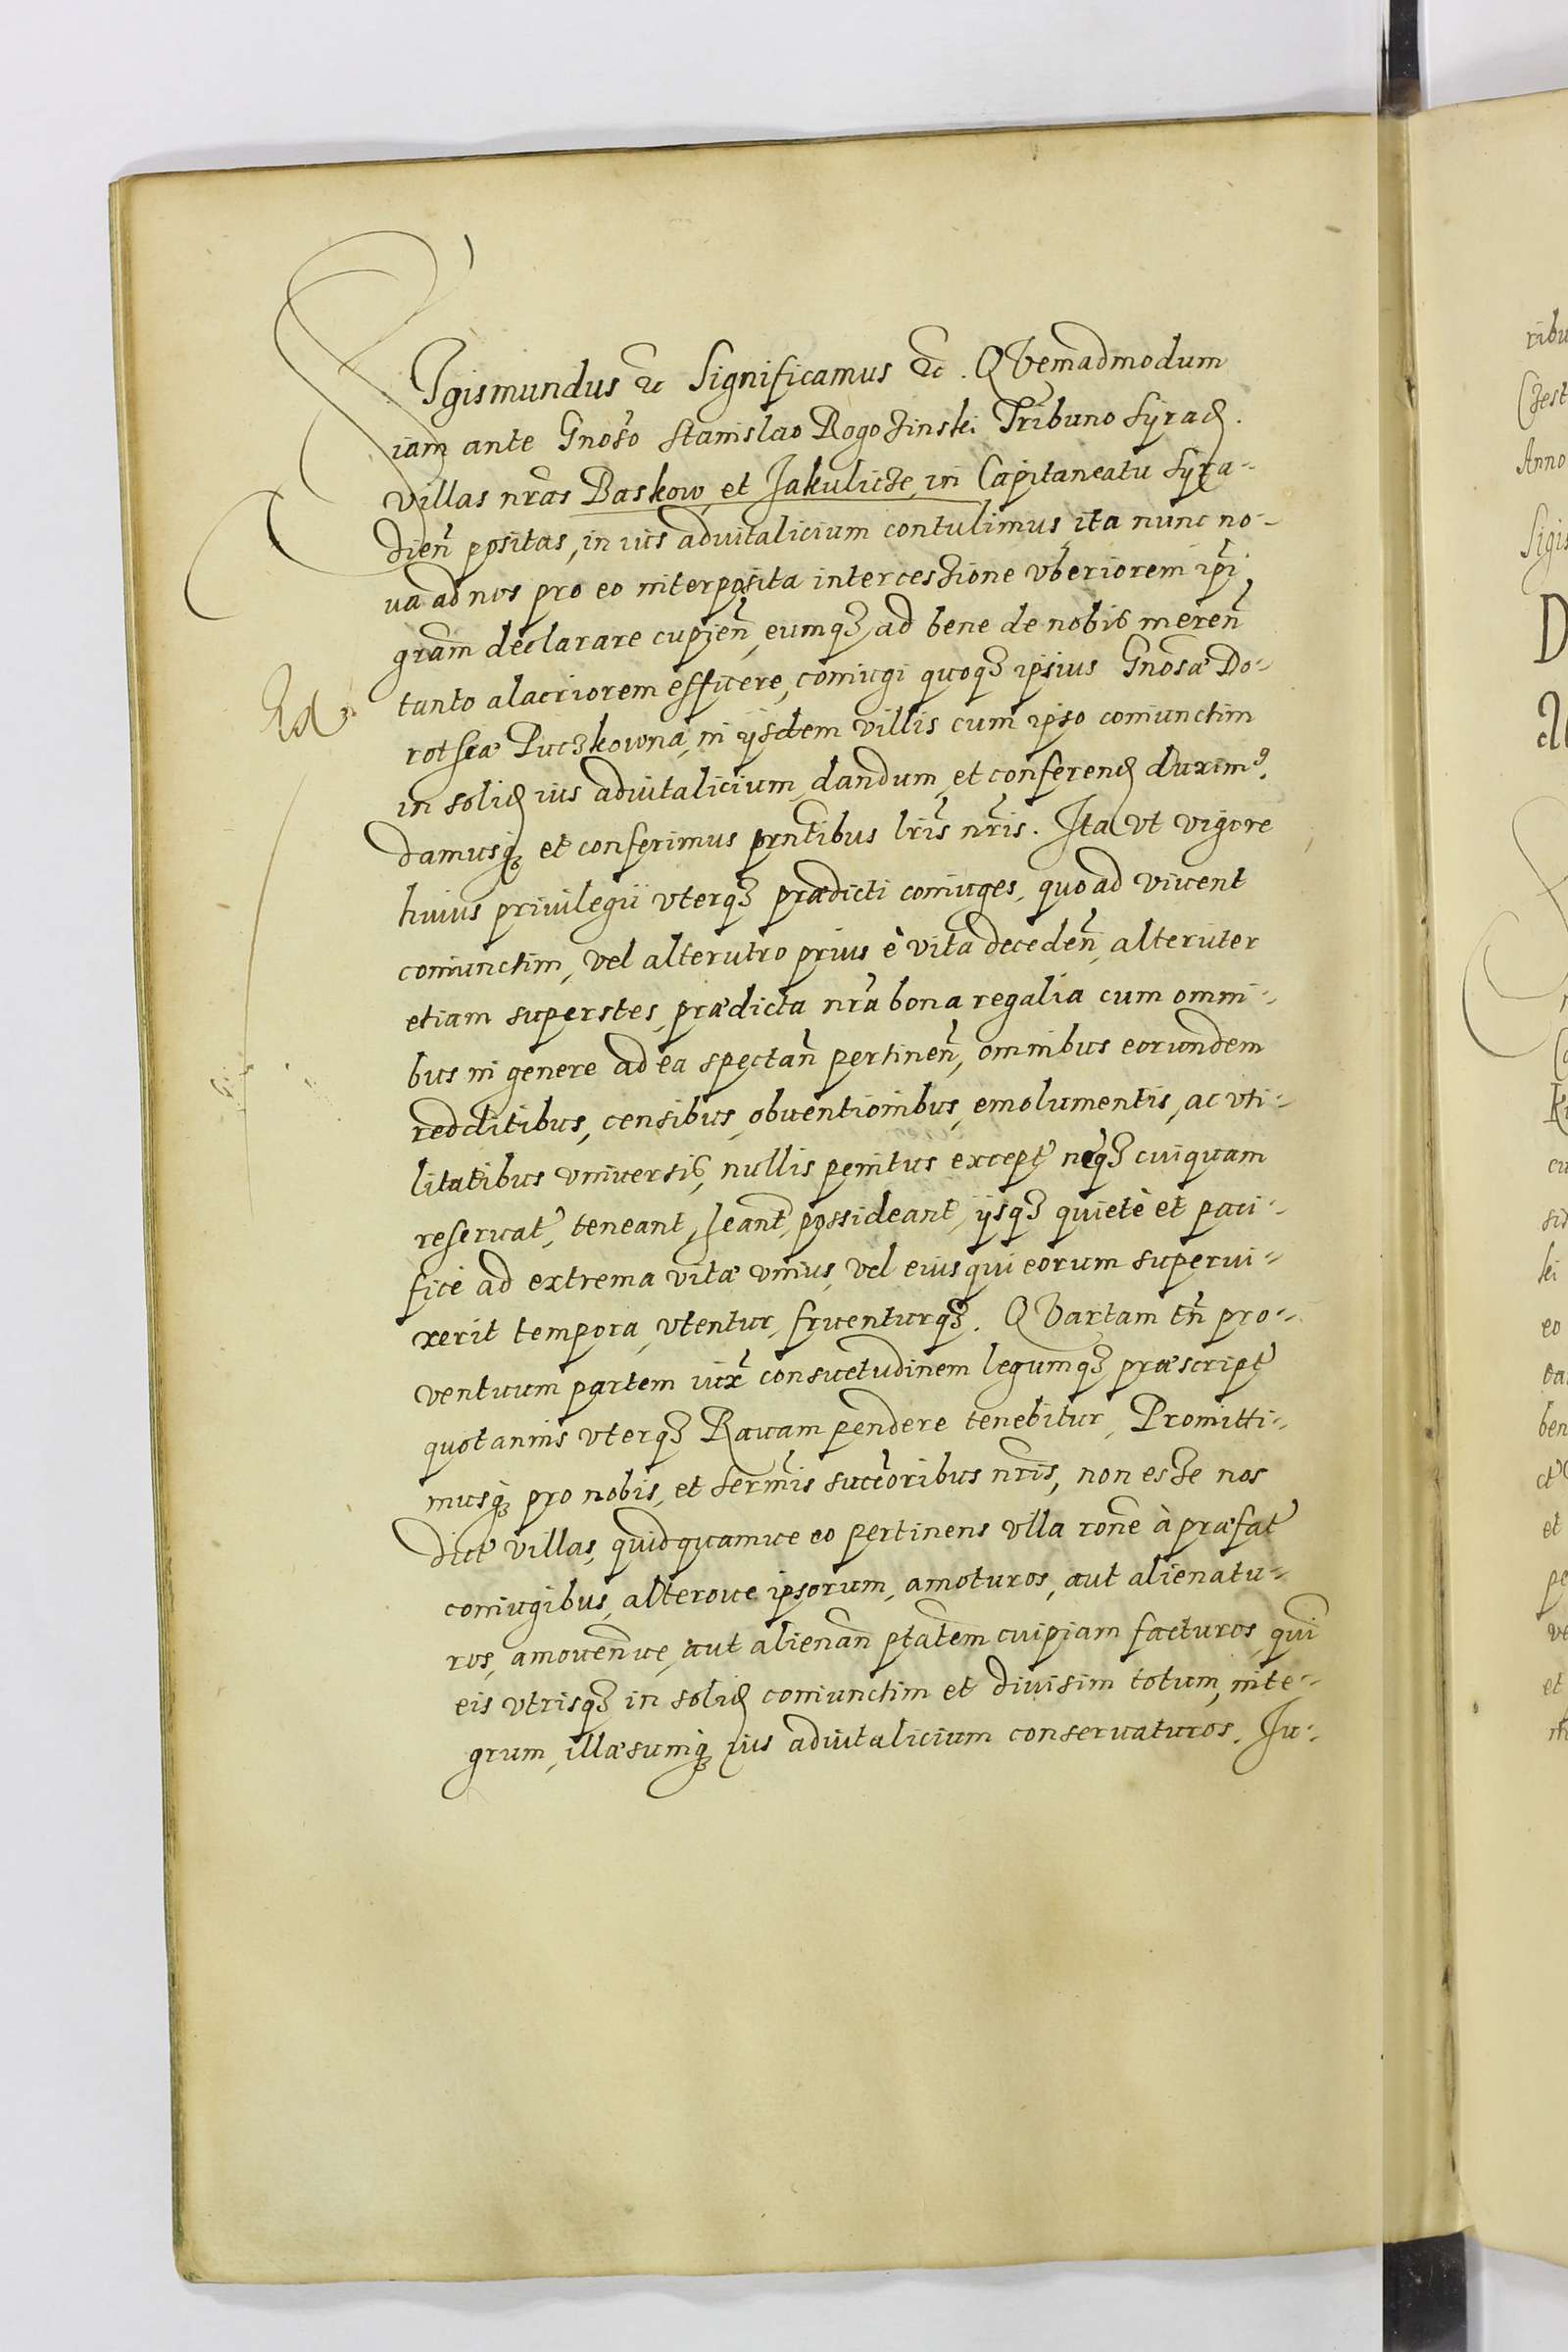 SIgismundus &c Significamus &c. QVemadmodum
iam ante Gnoso Stanislao Rogozinski Tribuno Syrad.
villas nras Baskow, et Jakulicze, in Capitaneatu Syra-
dien positas, in ius aduitalicium contulimus, ita nunc no-
ua ad nos pro eo interposita intercessione vberiorem ipi
gram declarare cupien, eumq3 ad bene de nobis meren
tanto alacriorem efficere, coniugi quoq3 ipsius Gnosæ Do-
rotheæ Puczkowna, in ijsdem villis cum ipso coniunctim
in solid ius aduitalicium, dandum, et conferend duxim9.
damusq3 et conferimus prntibus lris nris. Ita vt vigore
huius priuilegii vterq3 prædicti coniuges, quoad viuent
coniunctim, vel alterutro prius è vita deceden, alteruter
etiam superstes, prædicta nra bona regalia cum omni-
bus in genere ad ea spectan pertinen, omnibus eorundem
redditibus, censibus, obuentionibus, emolumentis, ac vti-
litatibus vniuersis, nullis penitus except neq3 cuiquam
reseruat, teneant, heant, possideant, ijsq3 quietè et paci-
ficè ad extrema vitæ vnius, vel eius qui eorum superui-
xerit tempora, vtentur, fruenturq3. QVartam tn pro-
ventuum partem iux consuetudinem legumq3 præscript
quotannis vterq3 Rauam pendere tenebitur, Promitti-
musq3 pro nobis, et Sermis succoribus nris, non esse nos
dict villas, quidquamue eo pertinens vlla rone à præfat
coniugibus, alteroue ipsorum, amoturos, aut alienatu-
ros, amouenue, aut alienan ptatem cuipiam facturos, qui
eis vtrisq3 in solid coniunctim et diuisim totum, inte-
grum, illæsumq3 ius aduitalicium conseruaturos. Iu-